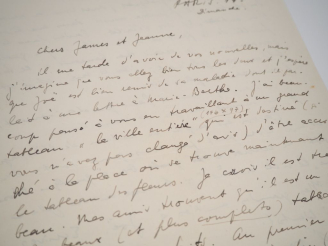 Paris
Dimanche
Chers James et Jeanne,
il me tarde d'avoir de vos nouvelles, mais
j'imagine que vous allez bien tous les deux et j'espère
que José est bien remis de sa maladie dont il par-
le à une lettre à Marie-Berthe. J'ai beau-
coup pensé à vous en travaillant à un grand
tableau "la ville entière" qui est destiné (si
vous n'avez pas changé d'avis) d'être accro-
ché à la place où se trouve maintenant
le tableau des fleurs. Je crois il est très
beau. Mes amis trouvent qu'il est un
beaux (et plus complets) tableaux
Au premier